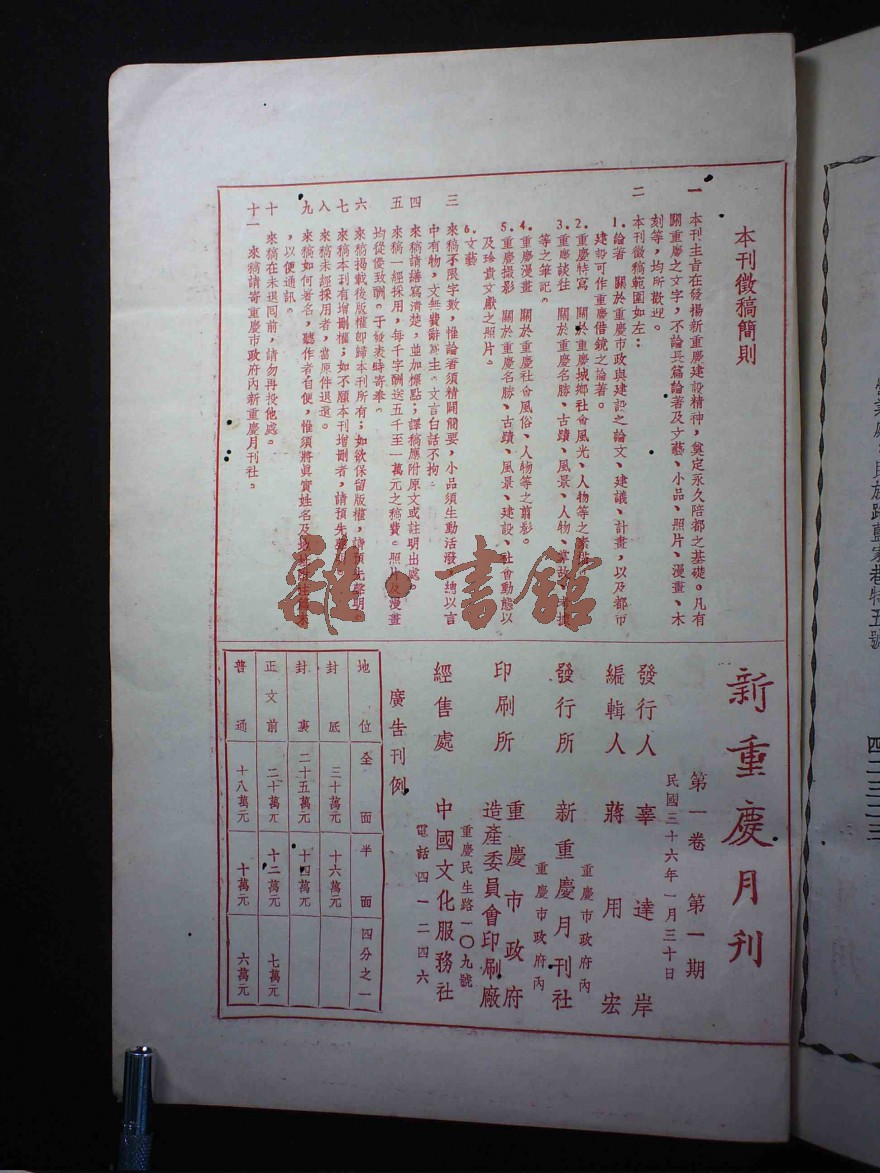 本刊徵稿簡則
一 本刊主旨在發揚新重慶建設精神，奠定永久陪都之基礎。凡有
關重慶之文字，不論長篇論著及文藝、小品、照片、漫畫、木
刻等，均所歡迎。
二 本刊徵稿範圍如左：
1. 論著 關於重慶市政與建設之論文、建議、計畫，以及都市
建設可作重慶借鏡之論著。
2. 重慶特寫 關於重慶城鄉社會風光、人物等之素描
3. 重慶談往 關於重慶名勝、古蹟、風景、人物、
等之筆記。
4. 重慶漫畫 關於重慶社會風俗、人物等之剪影。
5. 重慶攝影 關於重慶名勝、古蹟、風景、建設、社會動態以
及珍貴文獻之照片。
6. 文藝
三 來稿不限字數，惟論著須精闢簡要，小品須生動活潑，總以言
中有物，文無費辭為主。文言白話不拘。
四 來稿請繕寫清楚，並加標點；譯稿應附原文或註明出處。
五 來稿一經採用，每千字酬送五千至一萬元之稿費。照片及漫畫
均從優致酬。于發表時寄奉。
六 來稿揭載後版權即歸本刊所有；如欲保留版權，請預先聲明。
七 來稿本刊有增刪權；如不願本刊增刪者，請預先
八 來稿未經採用者，當原件退還。
九 來稿如何署名，聽作者自便，惟須將真實姓名及
，以便通訊。
十 來稿在未退回前，請勿再投他處。
十一 來稿請寄重慶市政府內新重慶月刊社。
新重慶月刊
第一卷 第一期
民國三十六年一月三十日
發行人 辜達岸
編輯人 蔣用宏
重慶市政府內
發行所 新重慶月刊社
重慶市政府內
印刷所 重慶市政府
造產委員會印刷廠
重慶民生路一〇九號
經售處 中國文化服務社
電話四一二四六
廣告刊例
地位 全面 半面 四分之一
封底 三十萬元 十六萬元
封裏 二十五萬元 十四萬元
正文前 二十萬元 十二萬元 七萬元
普通 十八萬元 十萬元 六萬元
雜·書館
民族路藍家巷特五號
四二三二三